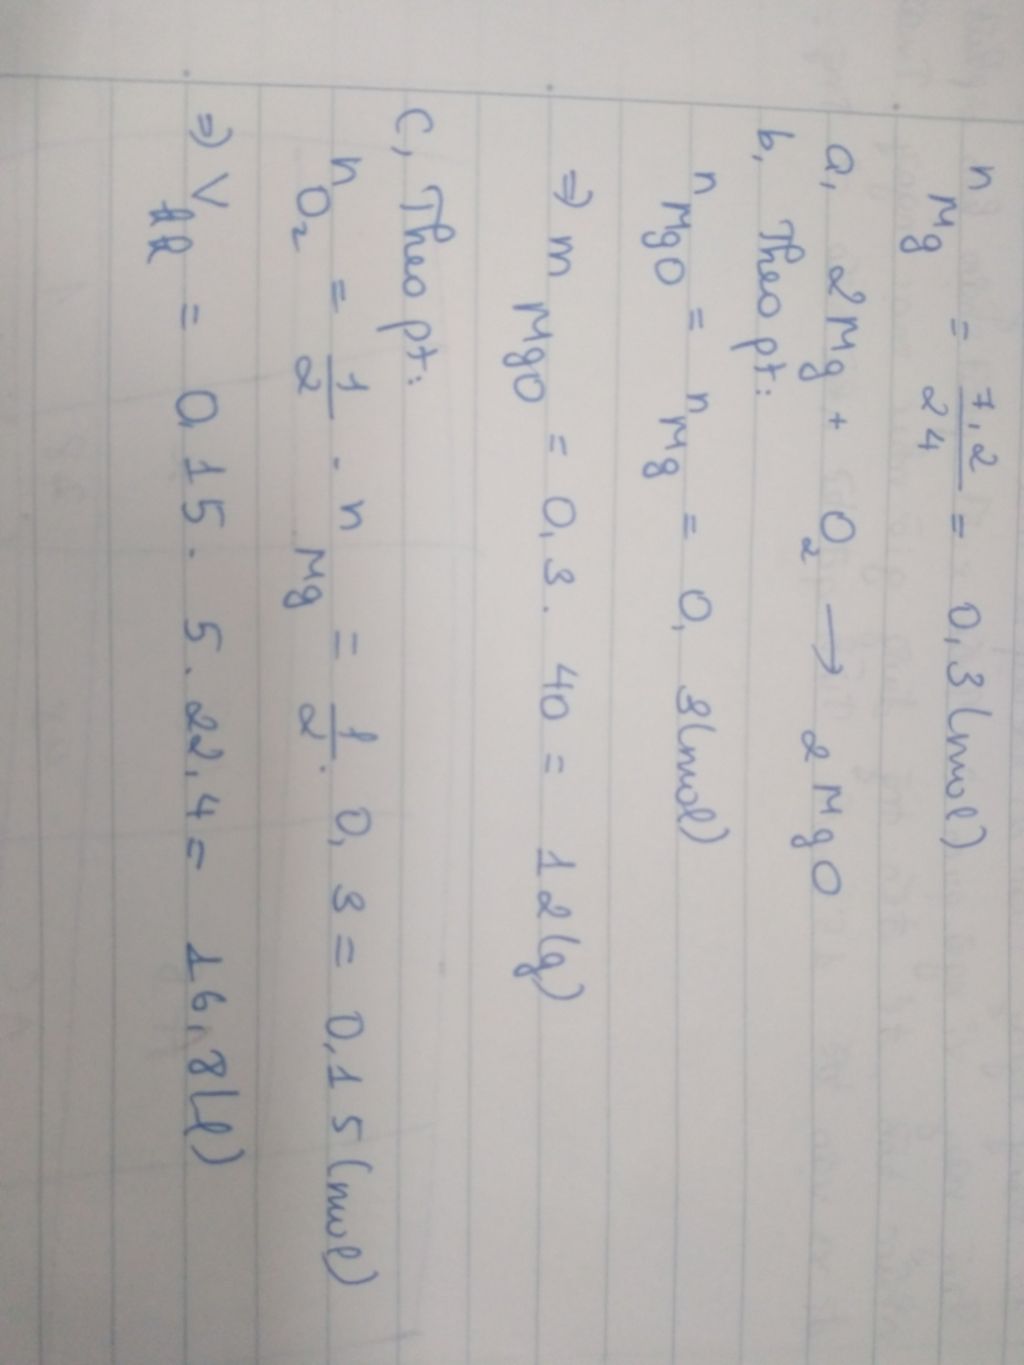 n Mg = 7,2/24 = 0,3 (mol)
a, 2Mg + O₂ → 2MgO
b, Theo pt:
n MgO = n Mg = 0,3 (mol)
=> m MgO = 0,3 . 40 = 12 (g)
C, Theo pt:
n O₂ = 1/2 . n Mg = 1/2 . 0,3 = 0,15 (mol)
=> V kk = 0,15 . 5 . 22,4 = 16,8 (l)